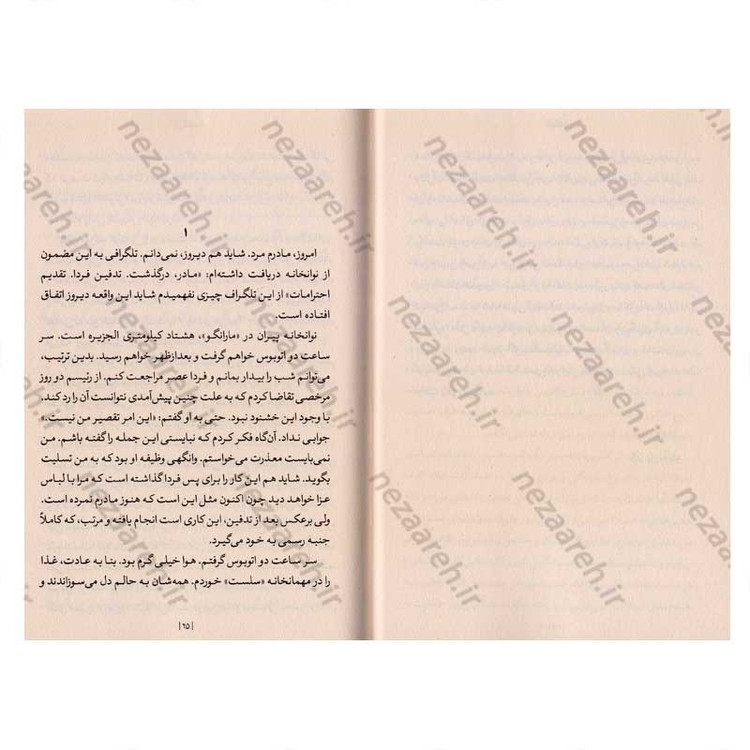 ۱
امروز، مادرم مرد. شاید هم دیروز، نمی‌دانم. تلگرافی به این مضمون
از نوانخانه دریافت داشته‌ام: «مادر، درگذشت. تدفین فردا. تقدیم
احترامات» از این تلگراف چیزی نفهمیدم شاید این واقعه دیروز اتفاق
افتاده است.
نوانخانه پیران در «مارانگو»، هشتاد کیلومتری الجزیره است. سر
ساعت دو اتوبوس خواهم گرفت و بعدازظهر خواهم رسید. بدین ترتیب،
می‌توانم شب را بیدار بمانم و فردا عصر مراجعت کنم. از رئیسم دو روز
مرخصی تقاضا کردم که به علت چنین پیش‌آمدی نتوانست آن را رد کند.
با وجود این خشنود نبود. حتی به او گفتم: «این امر تقصیر من نیست.»
جوابی نداد. آن‌گاه فکر کردم که نبایستی این جمله را گفته باشم. من
نمی‌بایست معذرت می‌خواستم. وانگهی وظیفه او بود که به من تسلیت
بگوید. شاید هم این کار را برای پس فردا گذاشته است که مرا با لباس
عزا خواهد دید چون اکنون مثل این است که هنوز مادرم نمرده است.
ولی برعکس بعد از تدفین، این کاری است انجام یافته و مرتب، که کاملاً
جنبه رسمی به خود می‌گیرد.
سر ساعت دو اتوبوس گرفتم. هوا خیلی گرم بود. بنا به عادت، غذا
را در مهمانخانه «سلست» خوردم. همه‌شان به حالم دل می‌سوزاندند و
|۶۵|
nezaareh.ir
nezaareh.ir
nezaareh.ir
nezaareh.ir
nezaareh.ir
nezaareh.ir
nezaareh.ir
nezaareh.ir